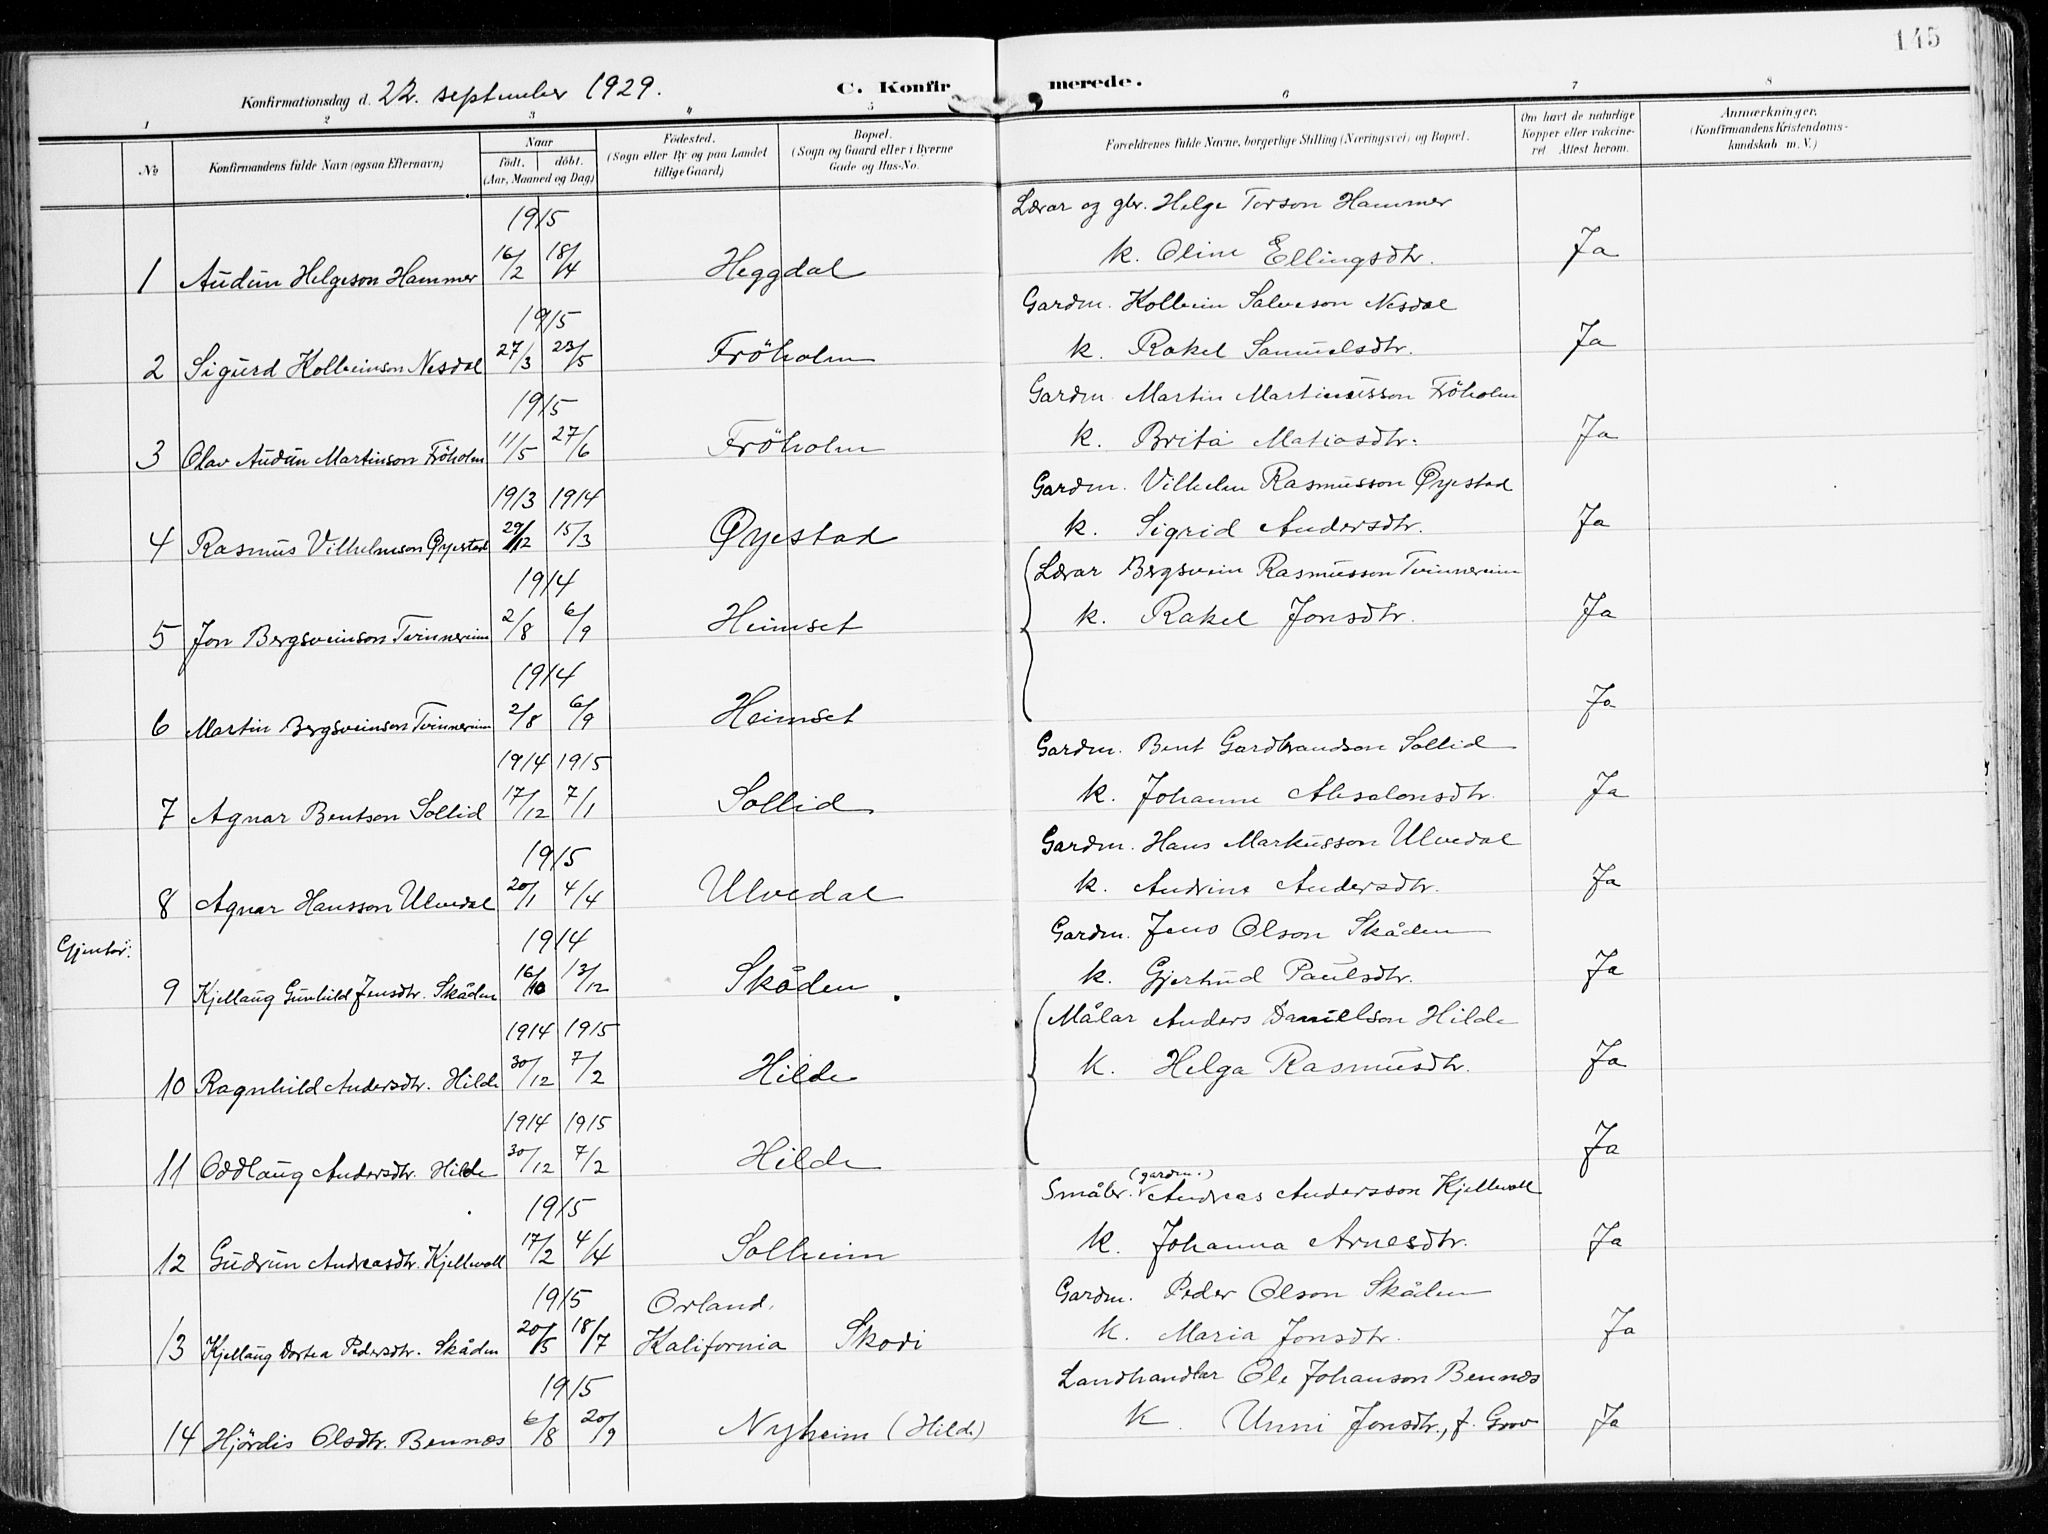 145
Konfirmationsdag d. 22. september 1929. C. Konfirmerede.
1 2 3 4 5 6 7 8
No
Konfirmandens fulde Navn (ogsaa Efternavn)
Naar
født. døbt.
(Aar, Maaned og Dag)
Fødested.
(Sogn eller By og paa Landet
tillige Gaard)
Bopæl.
(Sogn og Gaard eller i Byerne
Gade og Hus-No.
Forældrenes fulde Navne, borgerlige Stilling (Næringsvei) og Bopæl.
Om havt de naturlige
Kopper eller vakcine-
ret Attest herom.
Anmærkninger.
(Konfirmandens Kristendoms-
kundskab m. V.)
1915 Lærar og gbr. Helge Torson Hammer
1 Audun Helgeson Hammer 16/2 18/4 Heggdal k. Oline Ellingsdtr. Ja
1915 Gardm. Kolbein Salveson Nesdal
2 Sigurd Kolbeinson Nesdal 27/3 23/5 Fröholm k. Rakel Samuelsdtr. Ja
1915 Gardm. Martin Martinusson Fröholm
3 Olav Audun Martinson Fröholm 11/5 27/6 Fröholm k. Brita Matiasdtr. Ja
1913 1914 Gardm. Vilhelm Rasmusson Øyestad
4 Rasmus Vilhelmson Øyestad 29/12 15/3 Øyestad k. Sigrid Andersdtr. Ja
1914 Lærar Bergsvein Rasmusson Tvinnereim
5 Jon Bergsveinson Tvinnereim 2/8 6/9 Heimset k. Rakel Jonsdtr. Ja
1914
6 Martin Bergsveinson Tvinnereim 2/8 6/9 Heimset Ja
1914 1915 Gardm. Bent Gardbrandson Sollid
7 Agnar Bentson Sollid 17/12 7/1 Sollid k. Johanne Absalonsdtr. Ja
1915 Gardm. Hans Markusson Ulvedal
8 Agnar Hansson Ulvedal 20/1 4/4 Ulvedal k. Andrine Andersdtr. Ja
Gjentor: 1914 Gardm. Jens Olson Skåden
9 Kjellaug Gunhild Jensdtr. Skåden 16/10 13/12 Skåden k. Gjertrud Paulsdtr. Ja
1914 1915 Målar Anders Danielson Hilde
10 Ragnhild Andersdtr. Hilde 30/12 7/2 Hilde k. Helga Rasmusdtr. Ja
1914 1915
11 Oddlaug Andersdtr. Hilde 30/12 7/2 Hilde Ja
1915 Småbr. (gardm.) Andreas Andersson Kjellevoll
12 Gudrun Andreasdtr. Kjellevoll 17/2 4/4 Solheim k. Johanna Arnesdtr. Ja
1915 Orland, Gardm. Peder Olson Skåden
13 Kjellaug Dortea Pedersdtr. Skåden 20/5 18/7 Kalifornia Skodi k. Maria Jonsdtr. Ja
1915 Landhandlar Ole Johanson Bennæs
14 Hjördis Olsdtr. Bennæs 6/8 20/9 Nyheim (Hilde) k. Unni Jonsdtr., f. Grov Ja